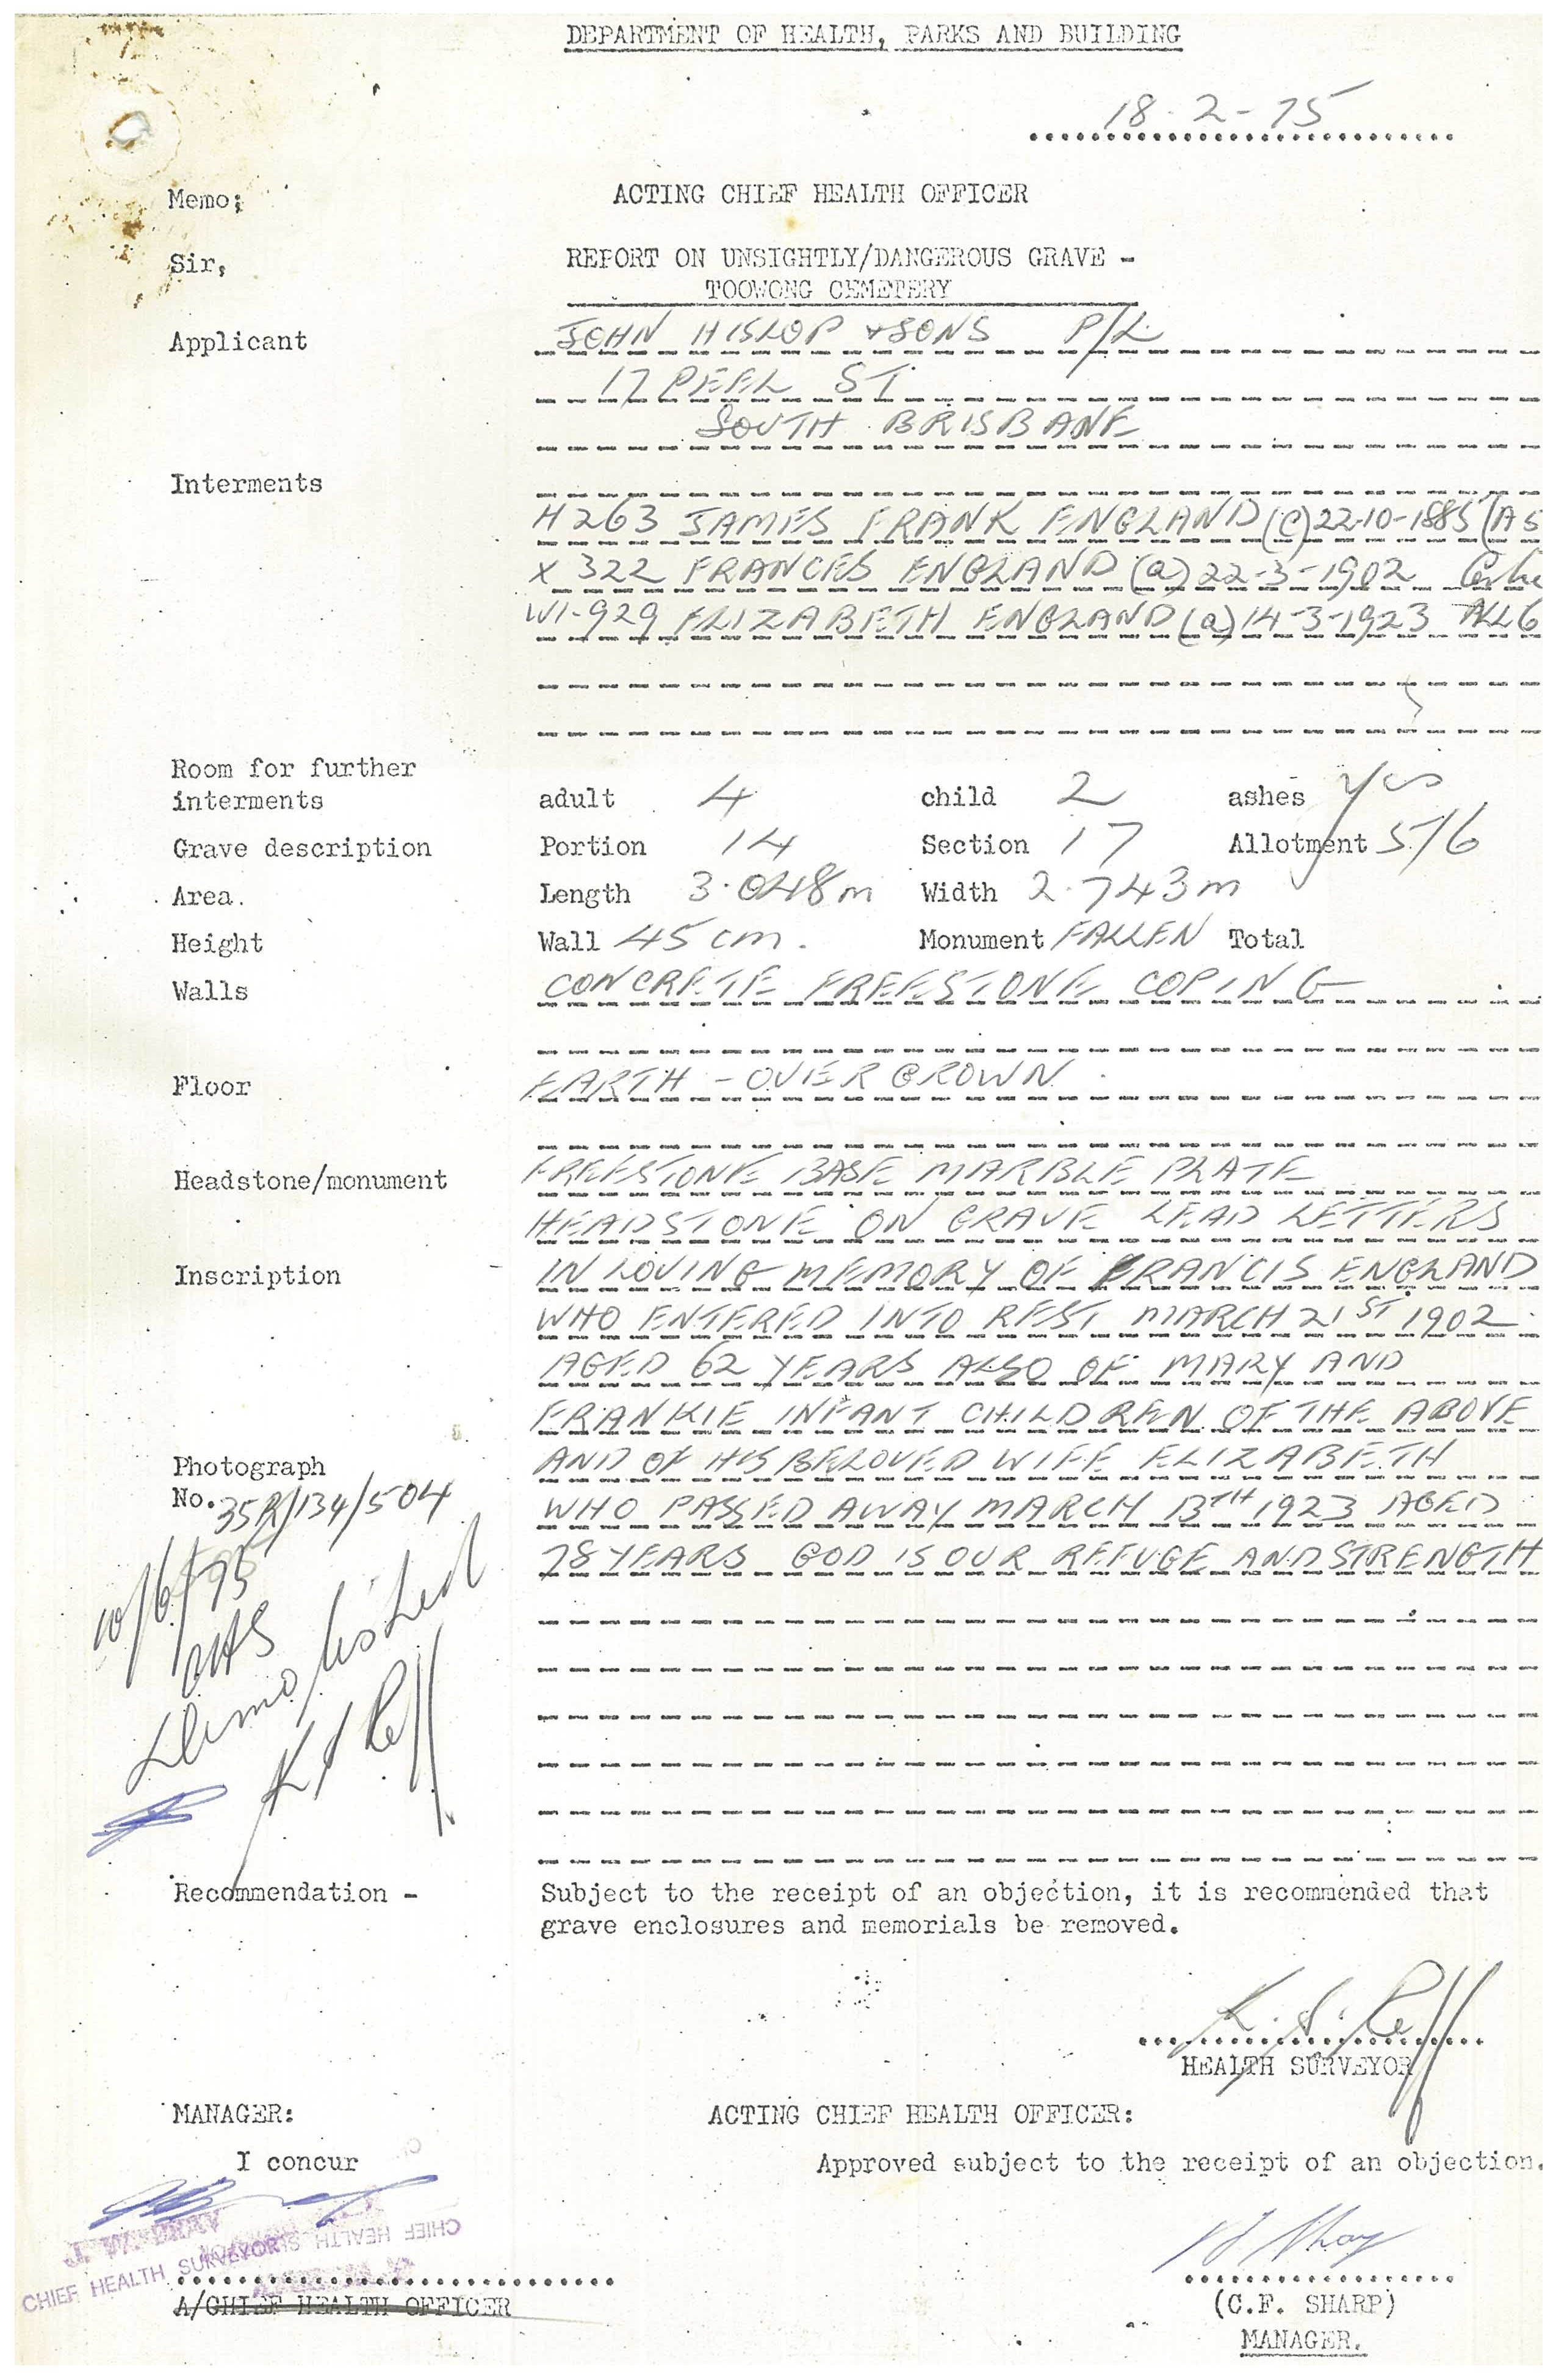 DEPARTMENT OF HEALTH, PARKS AND BUILDING
18-2-75
Memo; ACTING CHIEF HEALTH OFFICER
Sir, REPORT ON UNSIGHTLY/DANGEROUS GRAVE -
TOOWONG CEMETERY
Applicant JOHN HISLOP & SONS P/L
17 PEEL ST
SOUTH BRISBANE
Interments
H263 JAMES FRANK ENGLAND (C) 22-10-1885 (A5
X 322 FRANCES ENGLAND (a) 22-3-1902
W1-929 ELIZABETH ENGLAND (a) 14-3-1923 ALL6
Room for further
interments adult 4 child 2 ashes Yes
Grave description Portion 14 Section 17 Allotment 5/6
Area. Length 3.048m Width 2.743m
Height Wall 45 cm. Monument FALLEN Total
Walls CONCRETE FREESTONE COPING
Floor EARTH - OVERGROWN
Headstone/monument FREESTONE BASE MARBLE PLATE
HEADSTONE ON GRAVE LEAD LETTERS
Inscription - IN LOVING MEMORY OF FRANCIS ENGLAND
WHO ENTERED INTO REST MARCH 21ST 1902
AGED 62 YEARS ALSO OF MARY AND
FRANKIE INFANT CHILDREN OF THE ABOVE
AND OF HIS BELOVED WIFE ELIZABETH
WHO PASSED AWAY MARCH 13TH 1923 AGED
78 YEARS GOD IS OUR REFUGE AND STRENGTH
Photograph
No. 35R/134/504
10/6/75
Demolished
Recommendation - Subject to the receipt of an objection, it is recommended that
grave enclosures and memorials be removed.
HEALTH SURVEYOR
MANAGER: ACTING CHIEF HEALTH OFFICER:
I concur Approved subject to the receipt of an objection.
CHIEF HEALTH SURVEYOR
CHIEF HEALTH
A/CHIEF HEALTH OFFICER
(C.F. SHARP)
MANAGER.